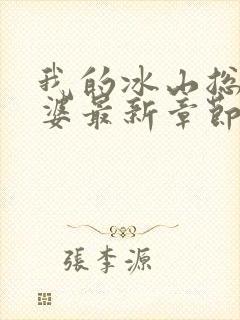 我的冰山总
婆最新章節
張李源